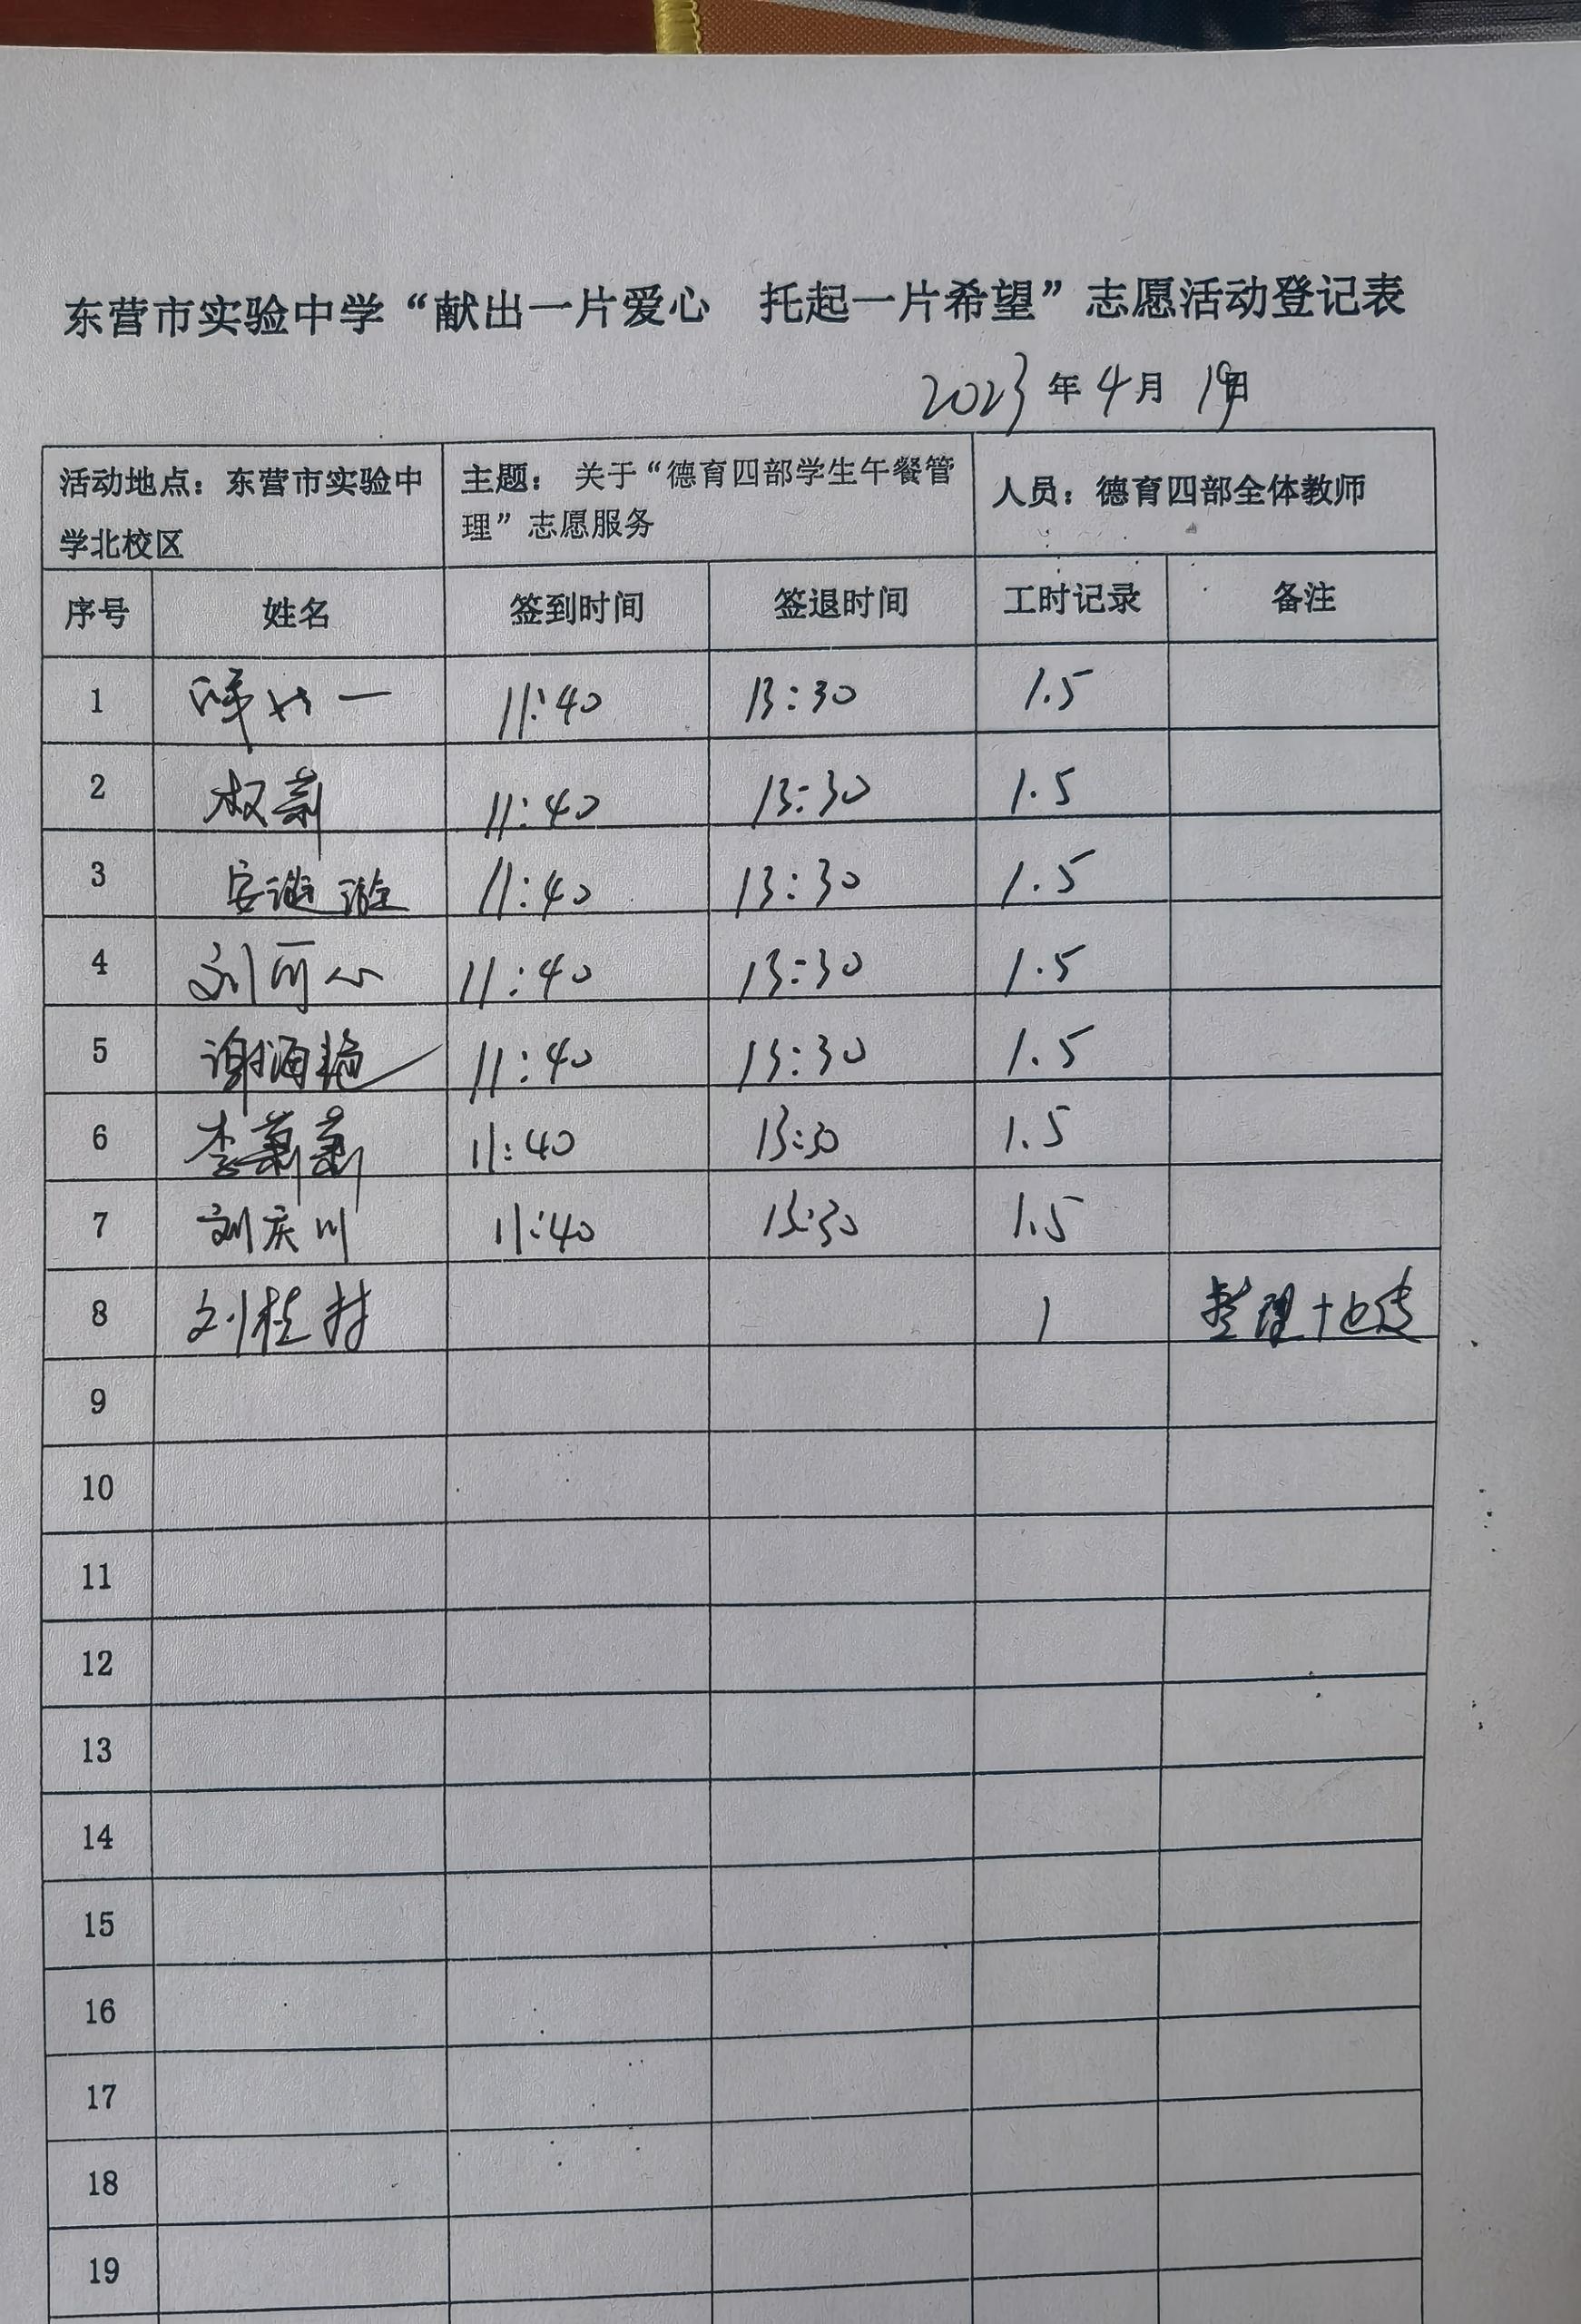 东营市实验中学“献出一片爱心 托起一片希望”志愿活动登记表
2023年4月19日
活动地点：东营市实验中学北校区 主题：关于“德育四部学生午餐管理”志愿服务 人员：德育四部全体教师
序号 姓名 签到时间 签退时间 工时记录 备注
1 一 11:40 13:30 1.5
2 权萧 11:40 13:30 1.5
3 安 11:40 13:30 1.5
4 刘可心 11:40 13:30 1.5
5 谢海艳 11:40 13:30 1.5
6 李萧萧 11:40 13:30 1.5
7 刘庆川 11:40 13:30 1.5
8 刘桂村 1 整理+上传
9
10
11
12
13
14
15
16
17
18
19